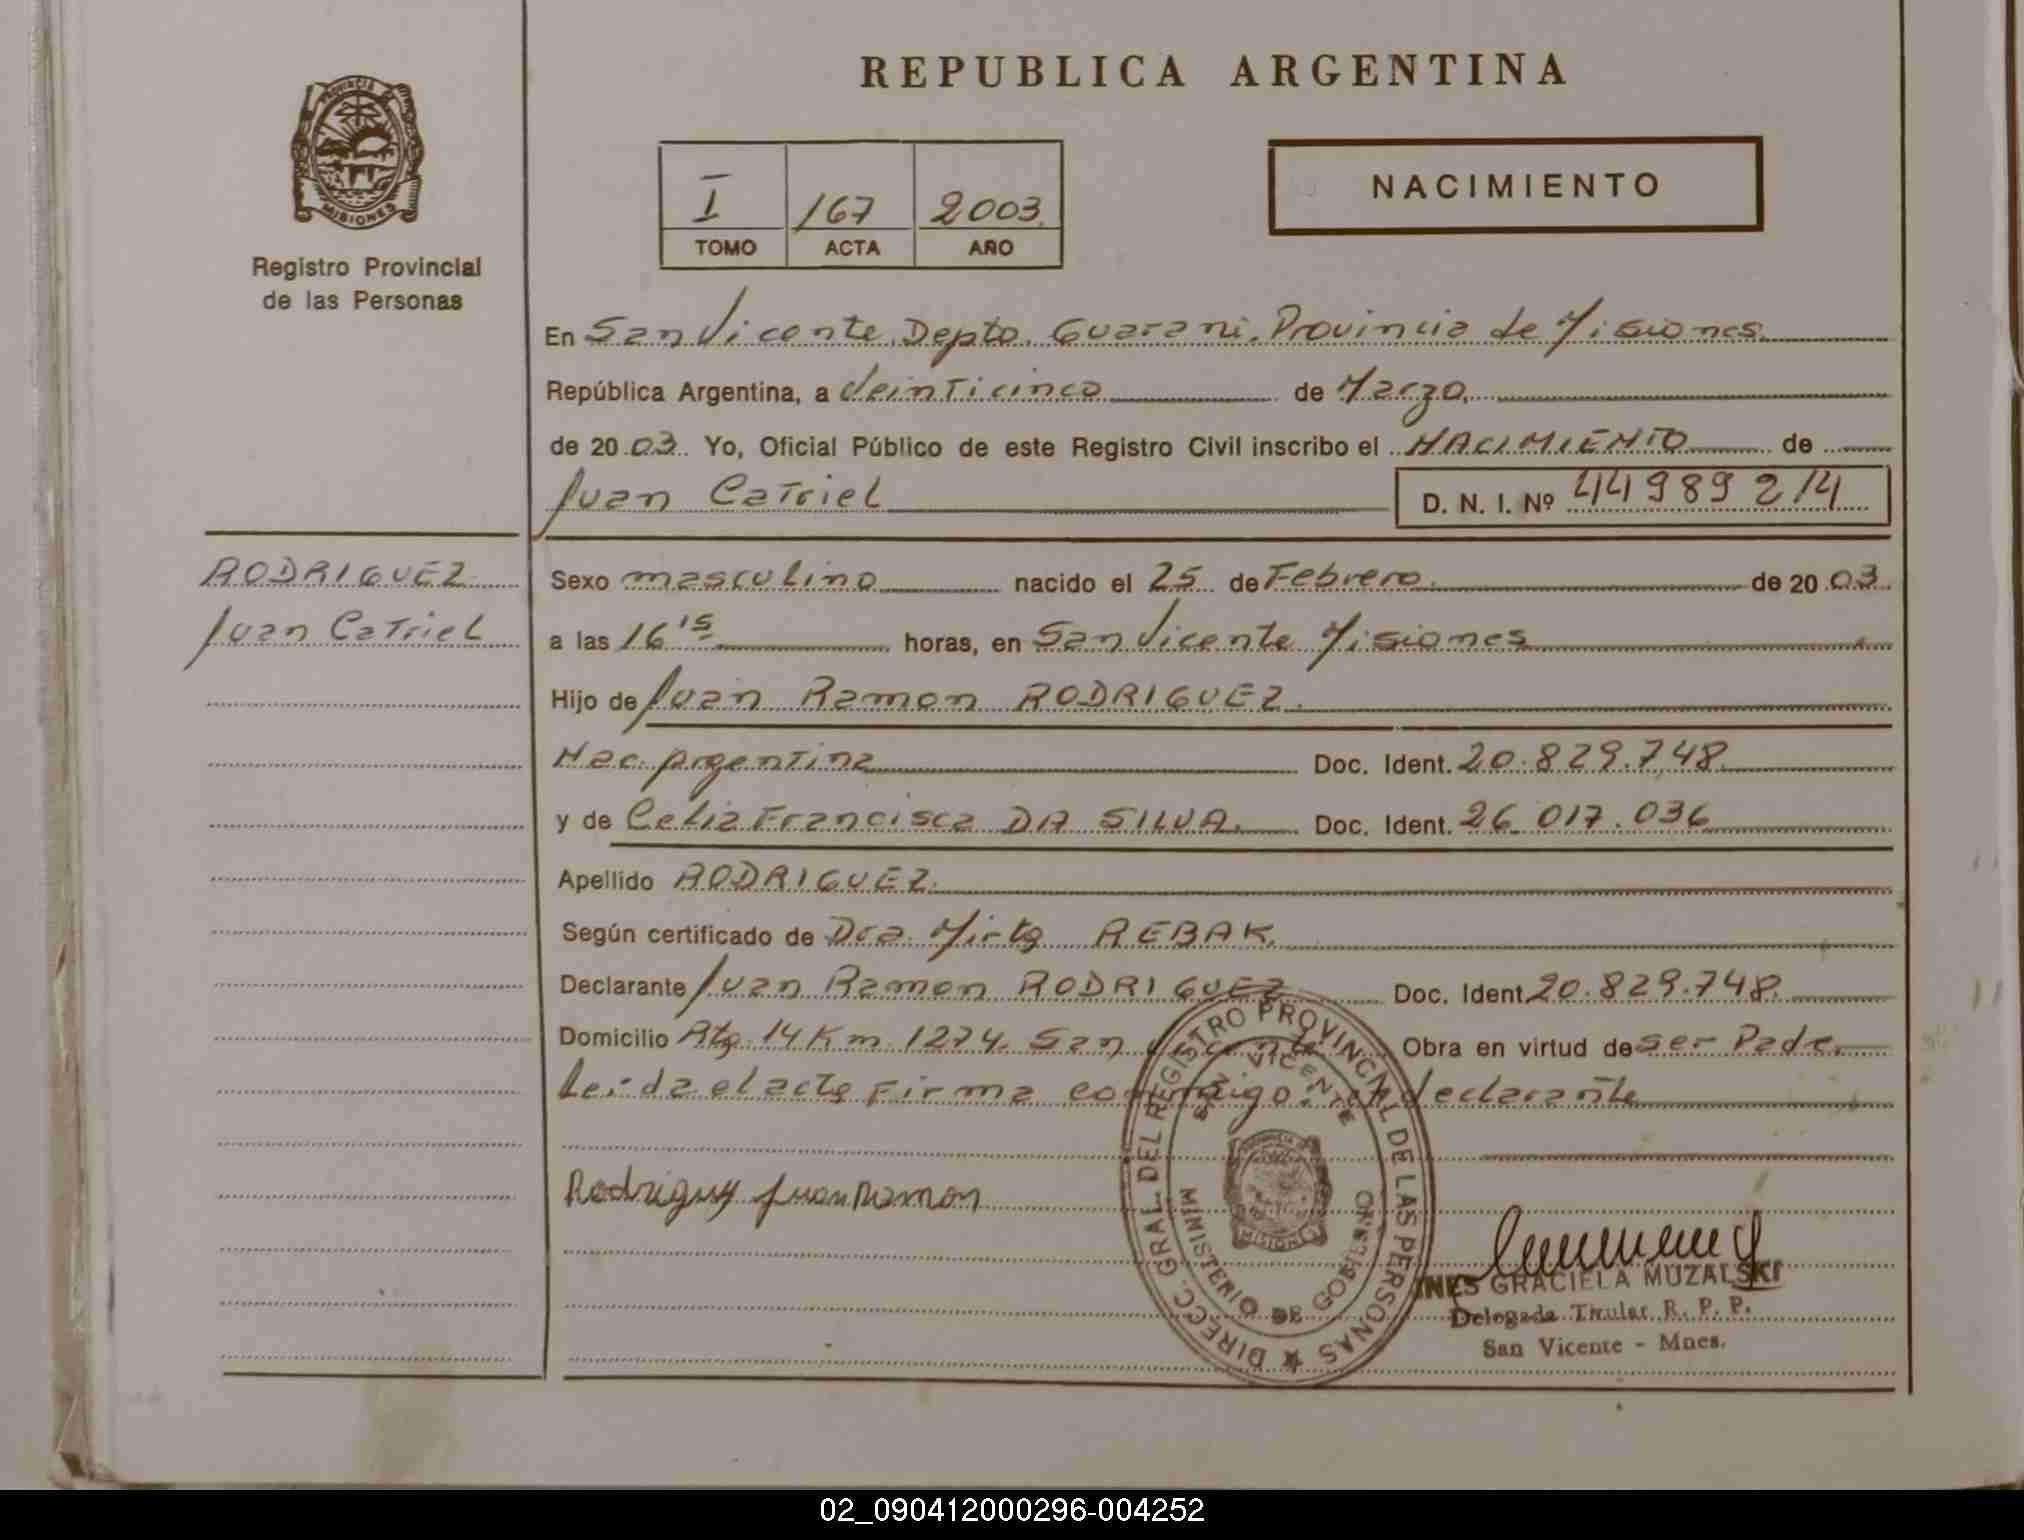 REPUBLICA ARGENTINA
PROVINCIA DE
MISIONES
Registro Provincial
de las Personas
I 167 2003
TOMO ACTA AÑO
NACIMIENTO
En San Vicente. Depto. Guarani. Provincia de Misiones.
República Argentina, a Veinticinco de Marzo.
de 20 03. Yo, Oficial Público de este Registro Civil inscribo el NACIMIENTO de
Juan Catriel D. N. I. Nº 44989214
RODRIGUEZ
Juan Catriel
Sexo masculino nacido el 25 de Febrero. de 20 03.
a las 16 15 horas, en San Vicente Misiones
Hijo de Juan Ramon RODRIGUEZ.
Nac. Argentina Doc. Ident. 20.829.748.
y de Celia Francisca DA SILVA. Doc. Ident. 26.017.036
Apellido RODRIGUEZ.
Según certificado de Dra. Mirta REBAK.
Declarante Juan Ramon RODRIGUEZ Doc. Ident. 20.829.748.
Domicilio Rta. 14 Km 1274. San Vicente Obra en virtud de ser Padre.
Leida el acta firma conmigo: el declarante
Rodriguez Juan Ramon
DIRECC. GRAL. DEL REGISTRO PROVINCIAL DE LAS PERSONAS
SAN VICENTE
MISIONES
MINISTERIO DE GOBIERNO
INES GRACIELA MUZALSKI
Delegada Titular R. P. P.
San Vicente - Mnes.
02_090412000296-004252